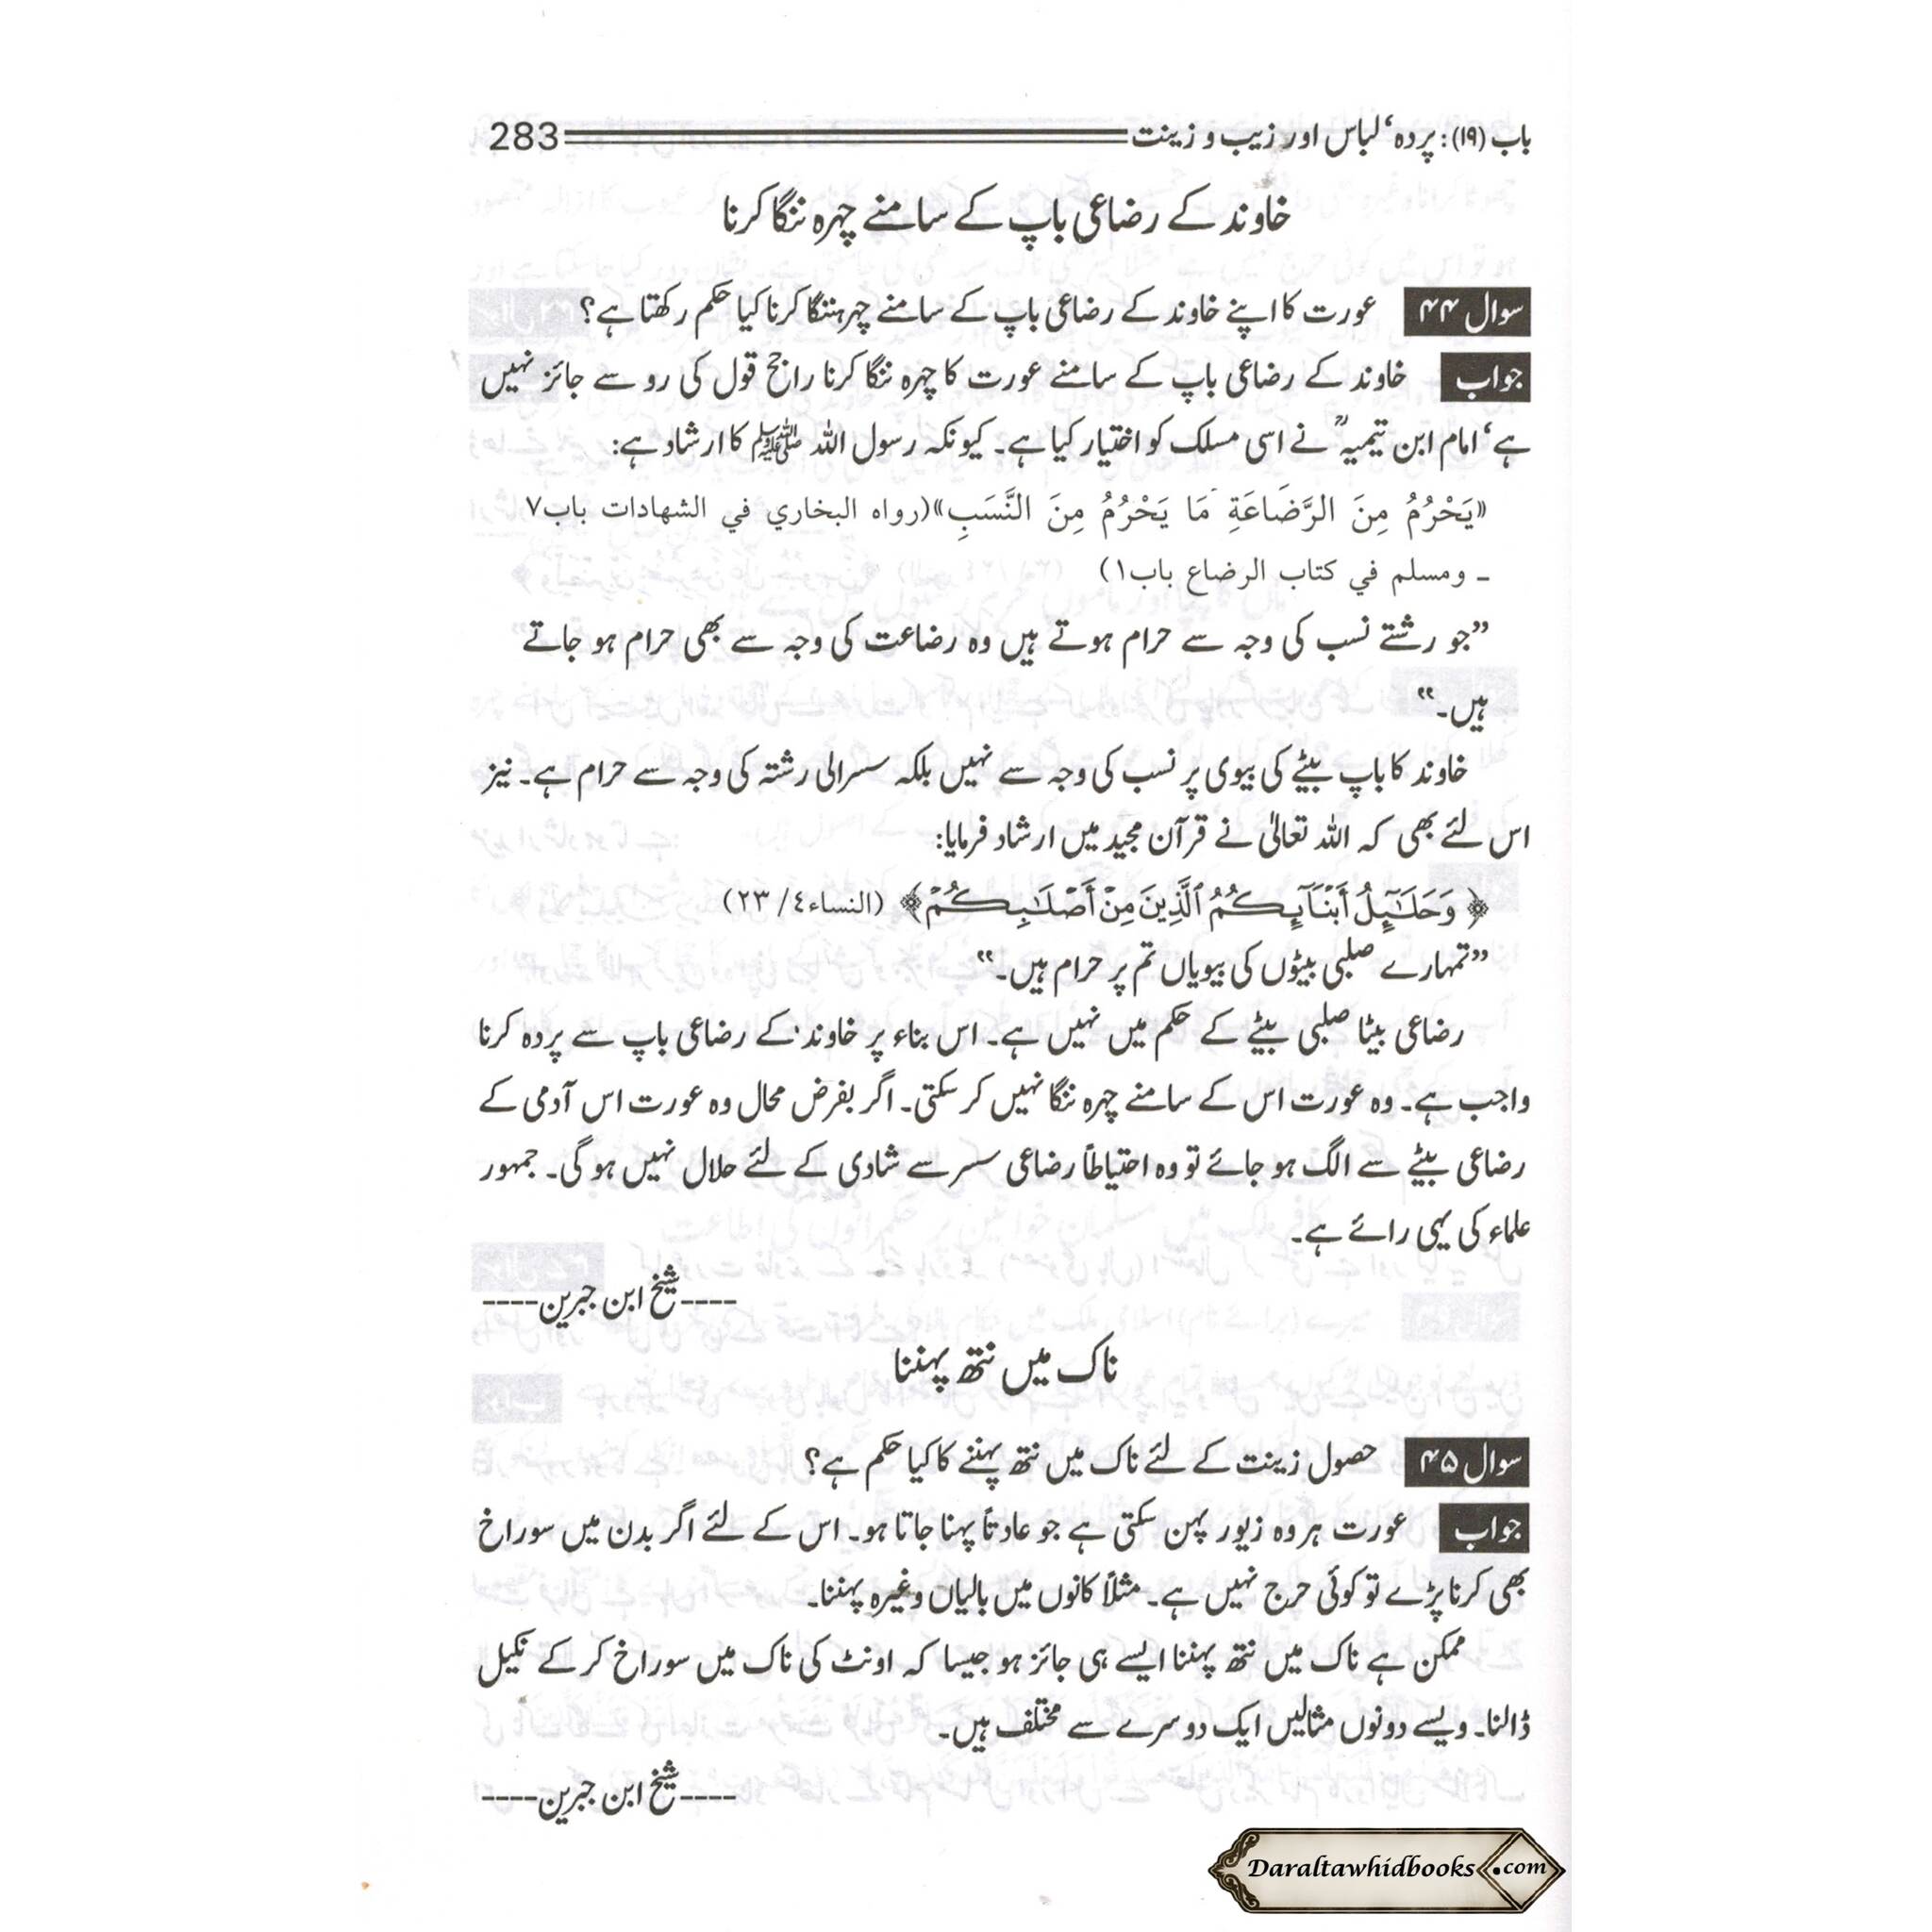 باب (۱۹): پردہ‘ لباس اور زیب و زینت 283
خاوند کے رضاعی باپ کے سامنے چہرہ ننگا کرنا
سوال ۴۴ عورت کا اپنے خاوند کے رضاعی باپ کے سامنے چہرہ ننگا کرنا کیا حکم رکھتا ہے؟
جواب خاوند کے رضاعی باپ کے سامنے عورت کا چہرہ ننگا کرنا راجح قول کی رو سے جائز نہیں
ہے‘ امام ابن تیمیہؒ نے اسی مسلک کو اختیار کیا ہے۔ کیونکہ رسول اللہ ﷺ کا ارشاد ہے:
«يَحْرُمُ مِنَ الرَّضَاعَةِ مَا يَحْرُمُ مِنَ النَّسَبِ»(رواه البخاري في الشهادات باب٧
ـ ومسلم في كتاب الرضاع باب١)
”جو رشتے نسب کی وجہ سے حرام ہوتے ہیں وہ رضاعت کی وجہ سے بھی حرام ہو جاتے
ہیں۔“
خاوند کا باپ بیٹے کی بیوی پر نسب کی وجہ سے نہیں بلکہ سسرالی رشتہ کی وجہ سے حرام ہے۔ نیز
اس لئے بھی کہ اللہ تعالیٰ نے قرآن مجید میں ارشاد فرمایا:
﴿وَحَلَٰٓئِلُ أَبْنَآئِكُمُ ٱلَّذِينَ مِنْ أَصْلَٰبِكُمْ﴾ (النساء٤/ ٢٣)
”تمہارے صلبی بیٹوں کی بیویاں تم پر حرام ہیں۔“
رضاعی بیٹا صلبی بیٹے کے حکم میں نہیں ہے۔ اس بناء پر خاوند کے رضاعی باپ سے پردہ کرنا
واجب ہے۔ وہ عورت اس کے سامنے چہرہ ننگا نہیں کر سکتی۔ اگر بفرض محال وہ عورت اس آدمی کے
رضاعی بیٹے سے الگ ہو جائے تو وہ احتیاطاً رضاعی سسر سے شادی کے لئے حلال نہیں ہو گی۔ جمہور
علماء کی یہی رائے ہے۔
----شیخ ابن جبرین----
ناک میں نتھ پہننا
سوال ۴۵ حصول زینت کے لئے ناک میں نتھ پہننے کا کیا حکم ہے؟
جواب عورت ہر وہ زیور پہن سکتی ہے جو عادتاً پہنا جاتا ہو۔ اس کے لئے اگر بدن میں سوراخ
بھی کرنا پڑے تو کوئی حرج نہیں ہے۔ مثلاً کانوں میں بالیاں وغیرہ پہننا۔
ممکن ہے ناک میں نتھ پہننا ایسے ہی جائز ہو جیسا کہ اونٹ کی ناک میں سوراخ کر کے نکیل
ڈالنا۔ ویسے دونوں مثالیں ایک دوسرے سے مختلف ہیں۔
----شیخ ابن جبرین----
Daraltawhidbooks.com